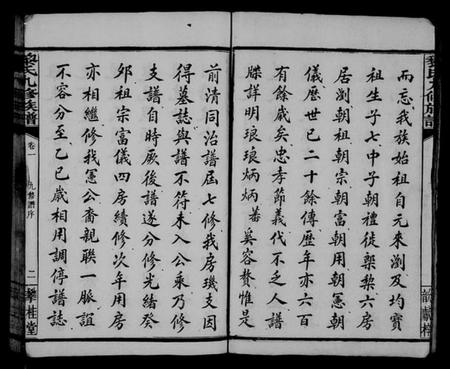 而忘我族始祖自元来瀏及均實
祖生子七中子朝禮徒槼黎六房
居瀏朝祖朝宗朝富朝用朝憲朝
儀歷世已二十餘傳歷年亦六百
有餘歲矣忠孝節義代不乏人譜
牒詳明琅琅炳炳昔奚容贅惟是
前清同治譜屆七修我房璣支因
得墓誌與譜不符未入公乘乃修
支譜自時厥後譜遂分修光緒癸
邜祖宗富儀四房續修次年用房
亦相繼修我憲公裔親聯一脈誼
不容分至乙巳歲相用調停譜誌
氏九修族譜
卷一
九修譜序
二
桂堂